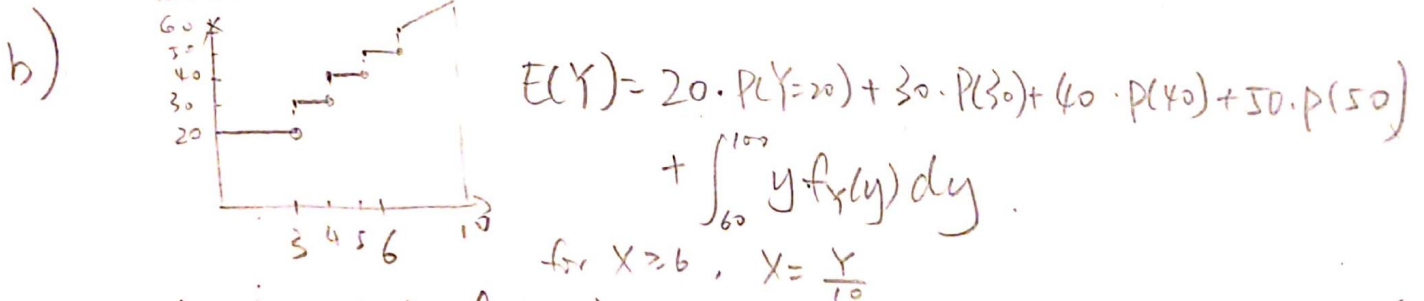 b)
60
50
40
30
20
3 4 5 6 10
E(Y)= 20·P(Y=20)+30·P(30)+40·P(40)+50·P(50)
+ ∫₆₀¹⁰⁰ y f_Y(y) dy.
for X≥6, X= Y/10